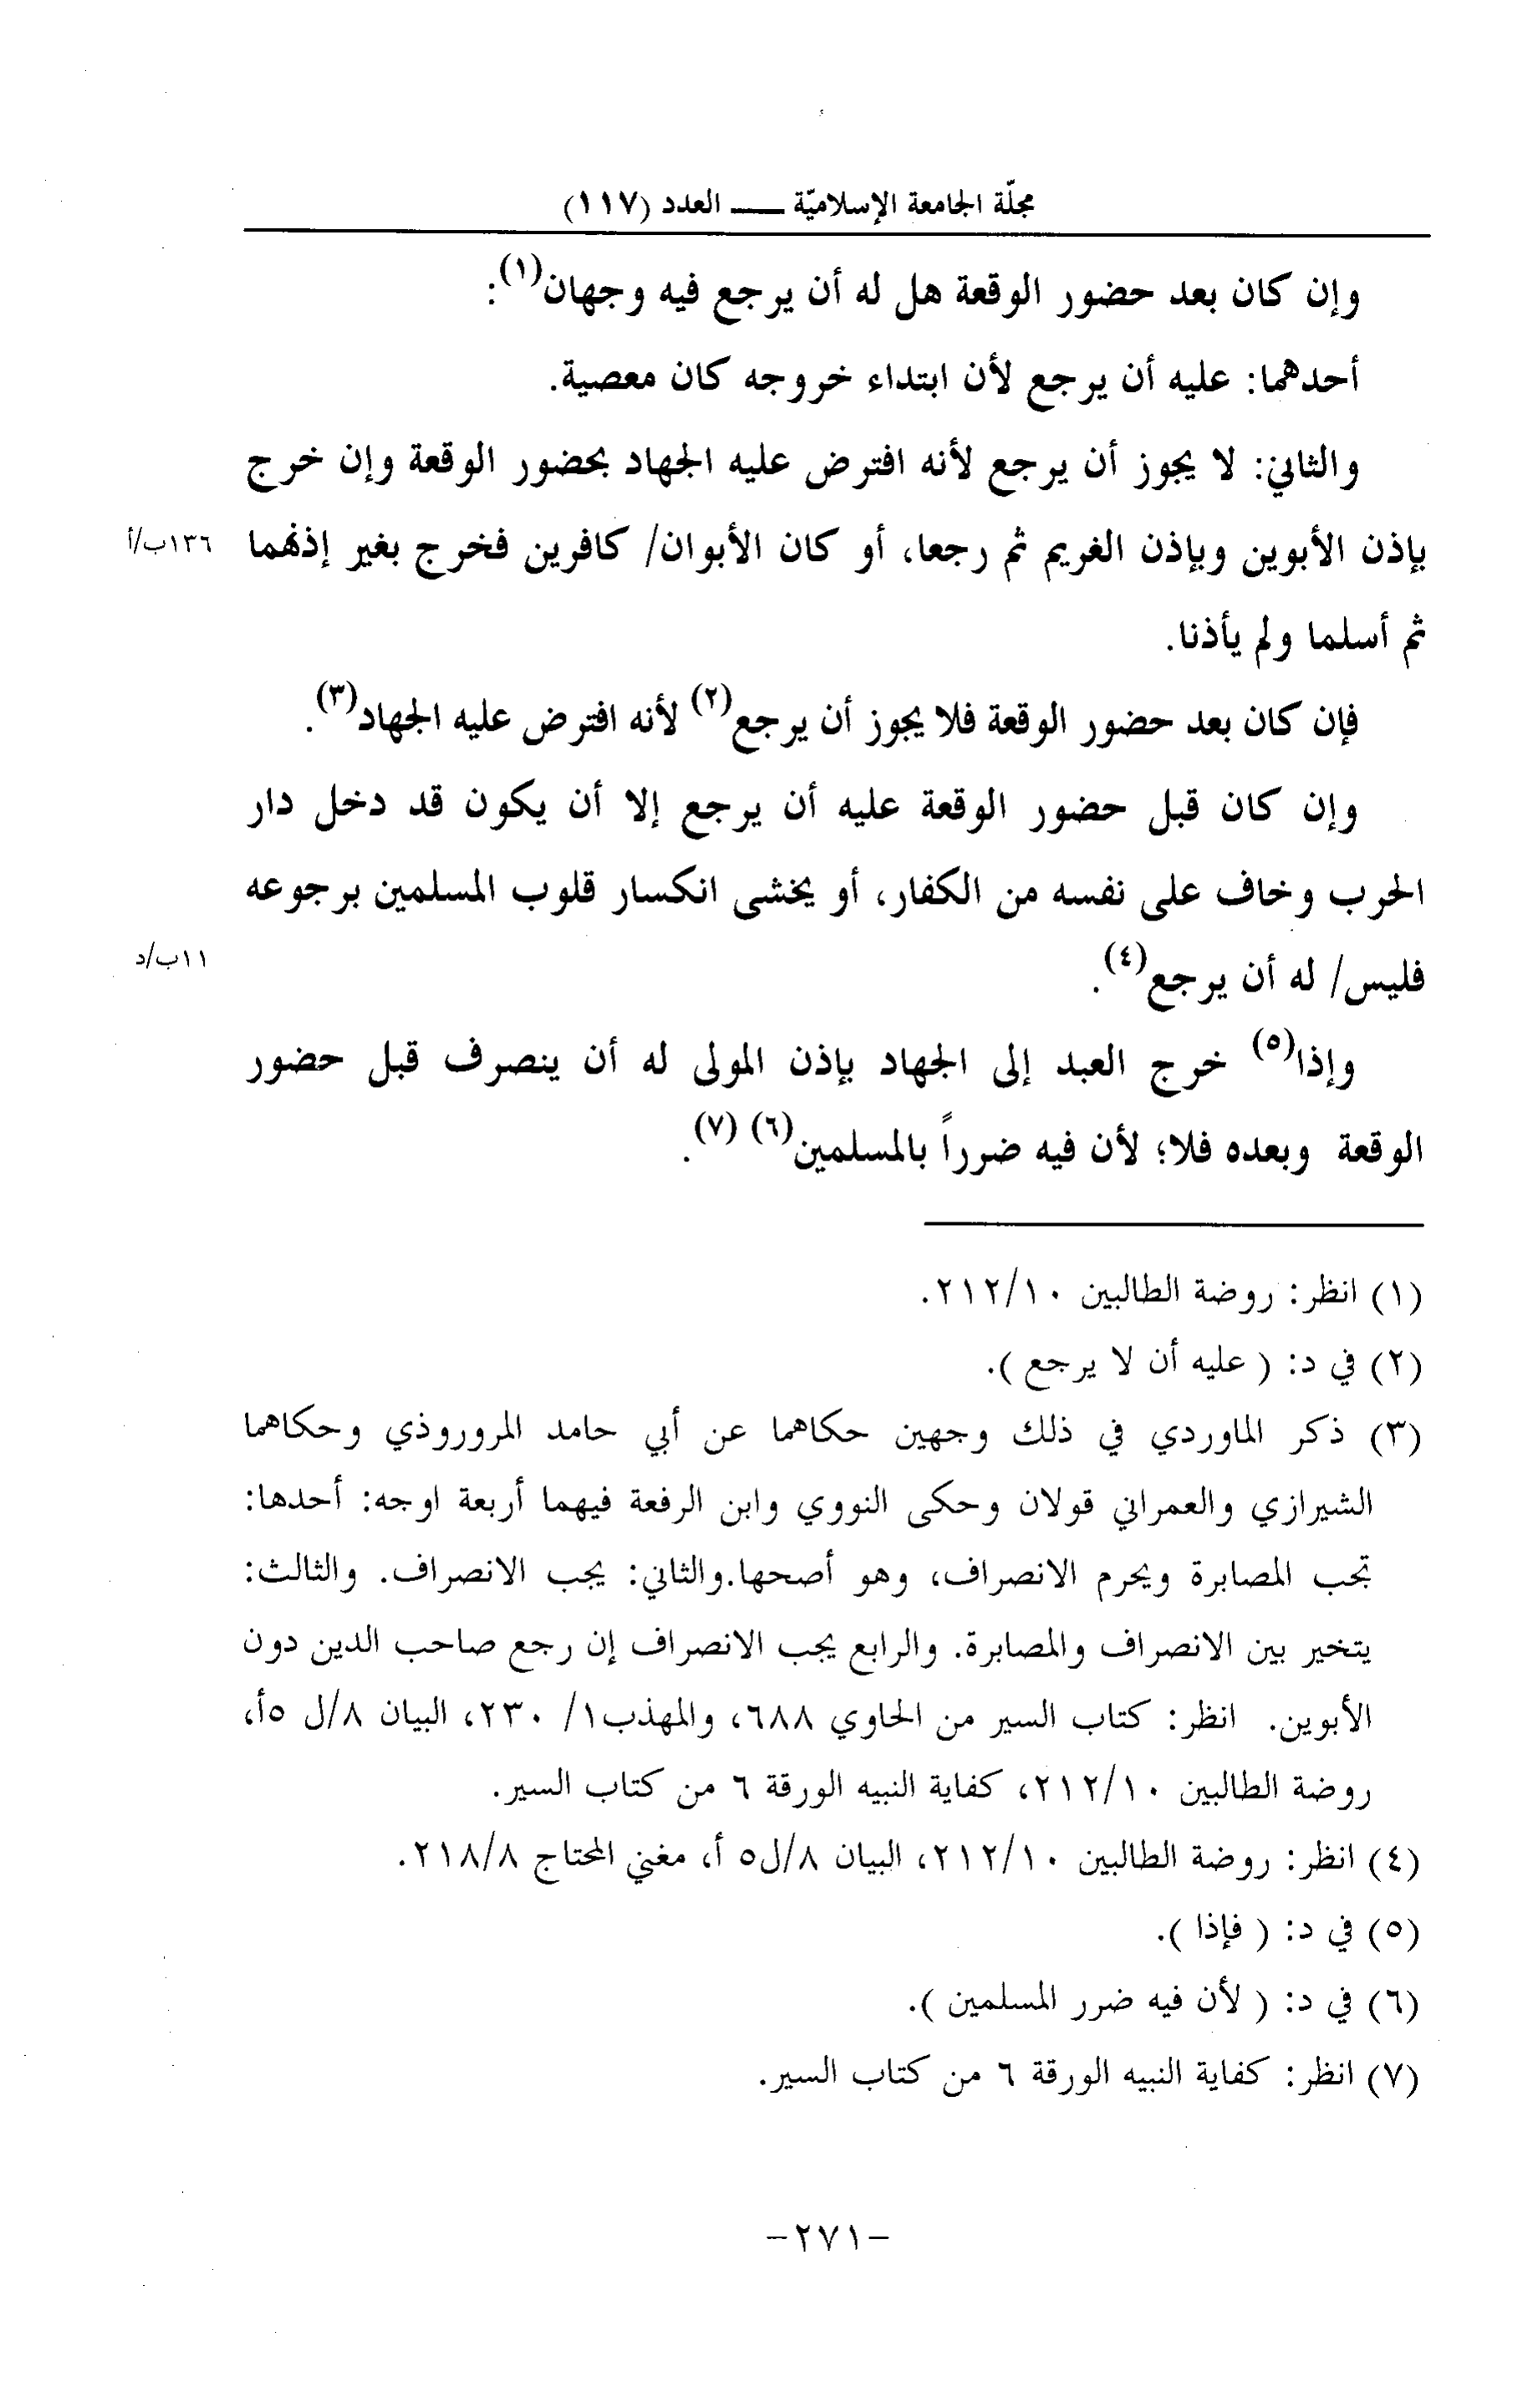 مجلّة الجامعة الإسلاميّة ـــــ العدد (١١٧)
وإن كان بعد حضور الوقعة هل له أن يرجع فيه وجهان(١):
أحدهما: عليه أن يرجع لأن ابتداء خروجه كان معصية.
والثاني: لا يجوز أن يرجع لأنه افترض عليه الجهاد بحضور الوقعة وإن خرج
بإذن الأبوين وبإذن الغريم ثم رجعا، أو كان الأبوان/ كافرين فخرج بغير إذنهما ١٣٦ب/أ
ثم أسلما ولم يأذنا.
فإن كان بعد حضور الوقعة فلا يجوز أن يرجع(٢) لأنه افترض عليه الجهاد(٣).
وإن كان قبل حضور الوقعة عليه أن يرجع إلا أن يكون قد دخل دار
الحرب وخاف على نفسه من الكفار، أو يخشى انكسار قلوب المسلمين برجوعه
فليس/ له أن يرجع(٤). ١١ب/د
وإذا(٥) خرج العبد إلى الجهاد بإذن المولى له أن ينصرف قبل حضور
الوقعة وبعده فلا؛ لأن فيه ضرراً بالمسلمين(٦) (٧).
(١) انظر: روضة الطالبين ٢١٢/١٠.
(٢) في د: ( عليه أن لا يرجع ).
(٣) ذكر الماوردي في ذلك وجهين حكاهما عن أبي حامد المروروذي وحكاهما
الشيرازي والعمراني قولان وحكى النووي وابن الرفعة فيهما أربعة اوجه: أحدها:
تجب المصابرة ويحرم الانصراف، وهو أصحها.والثاني: يجب الانصراف. والثالث:
يتخير بين الانصراف والمصابرة. والرابع يجب الانصراف إن رجع صاحب الدين دون
الأبوين. انظر: كتاب السير من الحاوي ٦٨٨، والمهذب١/ ٢٣٠، البيان ٨/ل ٥أ،
روضة الطالبين ٢١٢/١٠، كفاية النبيه الورقة ٦ من كتاب السير.
(٤) انظر: روضة الطالبين ٢١٢/١٠، البيان ٨/ل٥ أ، مغني المحتاج ٢١٨/٨.
(٥) في د: ( فإذا ).
(٦) في د: ( لأن فيه ضرر المسلمين ).
(٧) انظر: كفاية النبيه الورقة ٦ من كتاب السير.
-٢٧١-